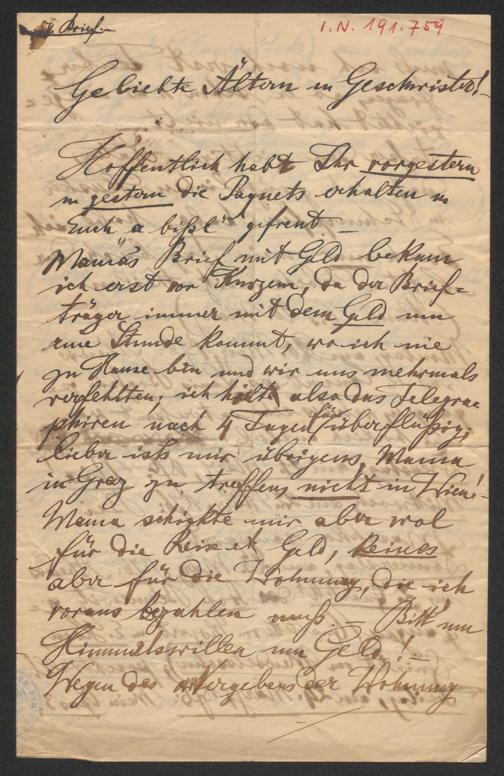 Brief.
I.N. 191.759
Geliebte Ältern u Geschwister!
Hoffentlich habt Ihr vorgestern
u gestern die Paquets erhalten u
Euch „a bißl“ gefreut —
Mamas Brief mit Geld bekam
ich erst vor Kurzem, da der Brief=
träger immer mit dem Geld um
eine Stunde kommt, wo ich nie
zu Hause bin und wir uns mehrmals
verfehlten; ich hielte also das Telegra
phiren nach 4 Tagen für überflüßig;
lieber ists mir übrigens, Mama
in Graz zu treffen, nicht in Wien!
Mama schikte mir aber wol
für die Reise Geld, keines
aber für die Wohnung, die ich
voraus bezahlen muß. — Bitt' um
Himmelswillen um Geld! —
Wegen des Vergebens der Wohnung